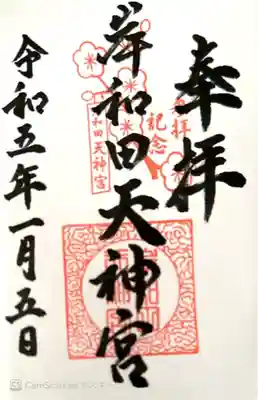 奉拝
参拝
記念
岸和田天神宮
岸和田天神宮
令和五年一月五日
CamScanner